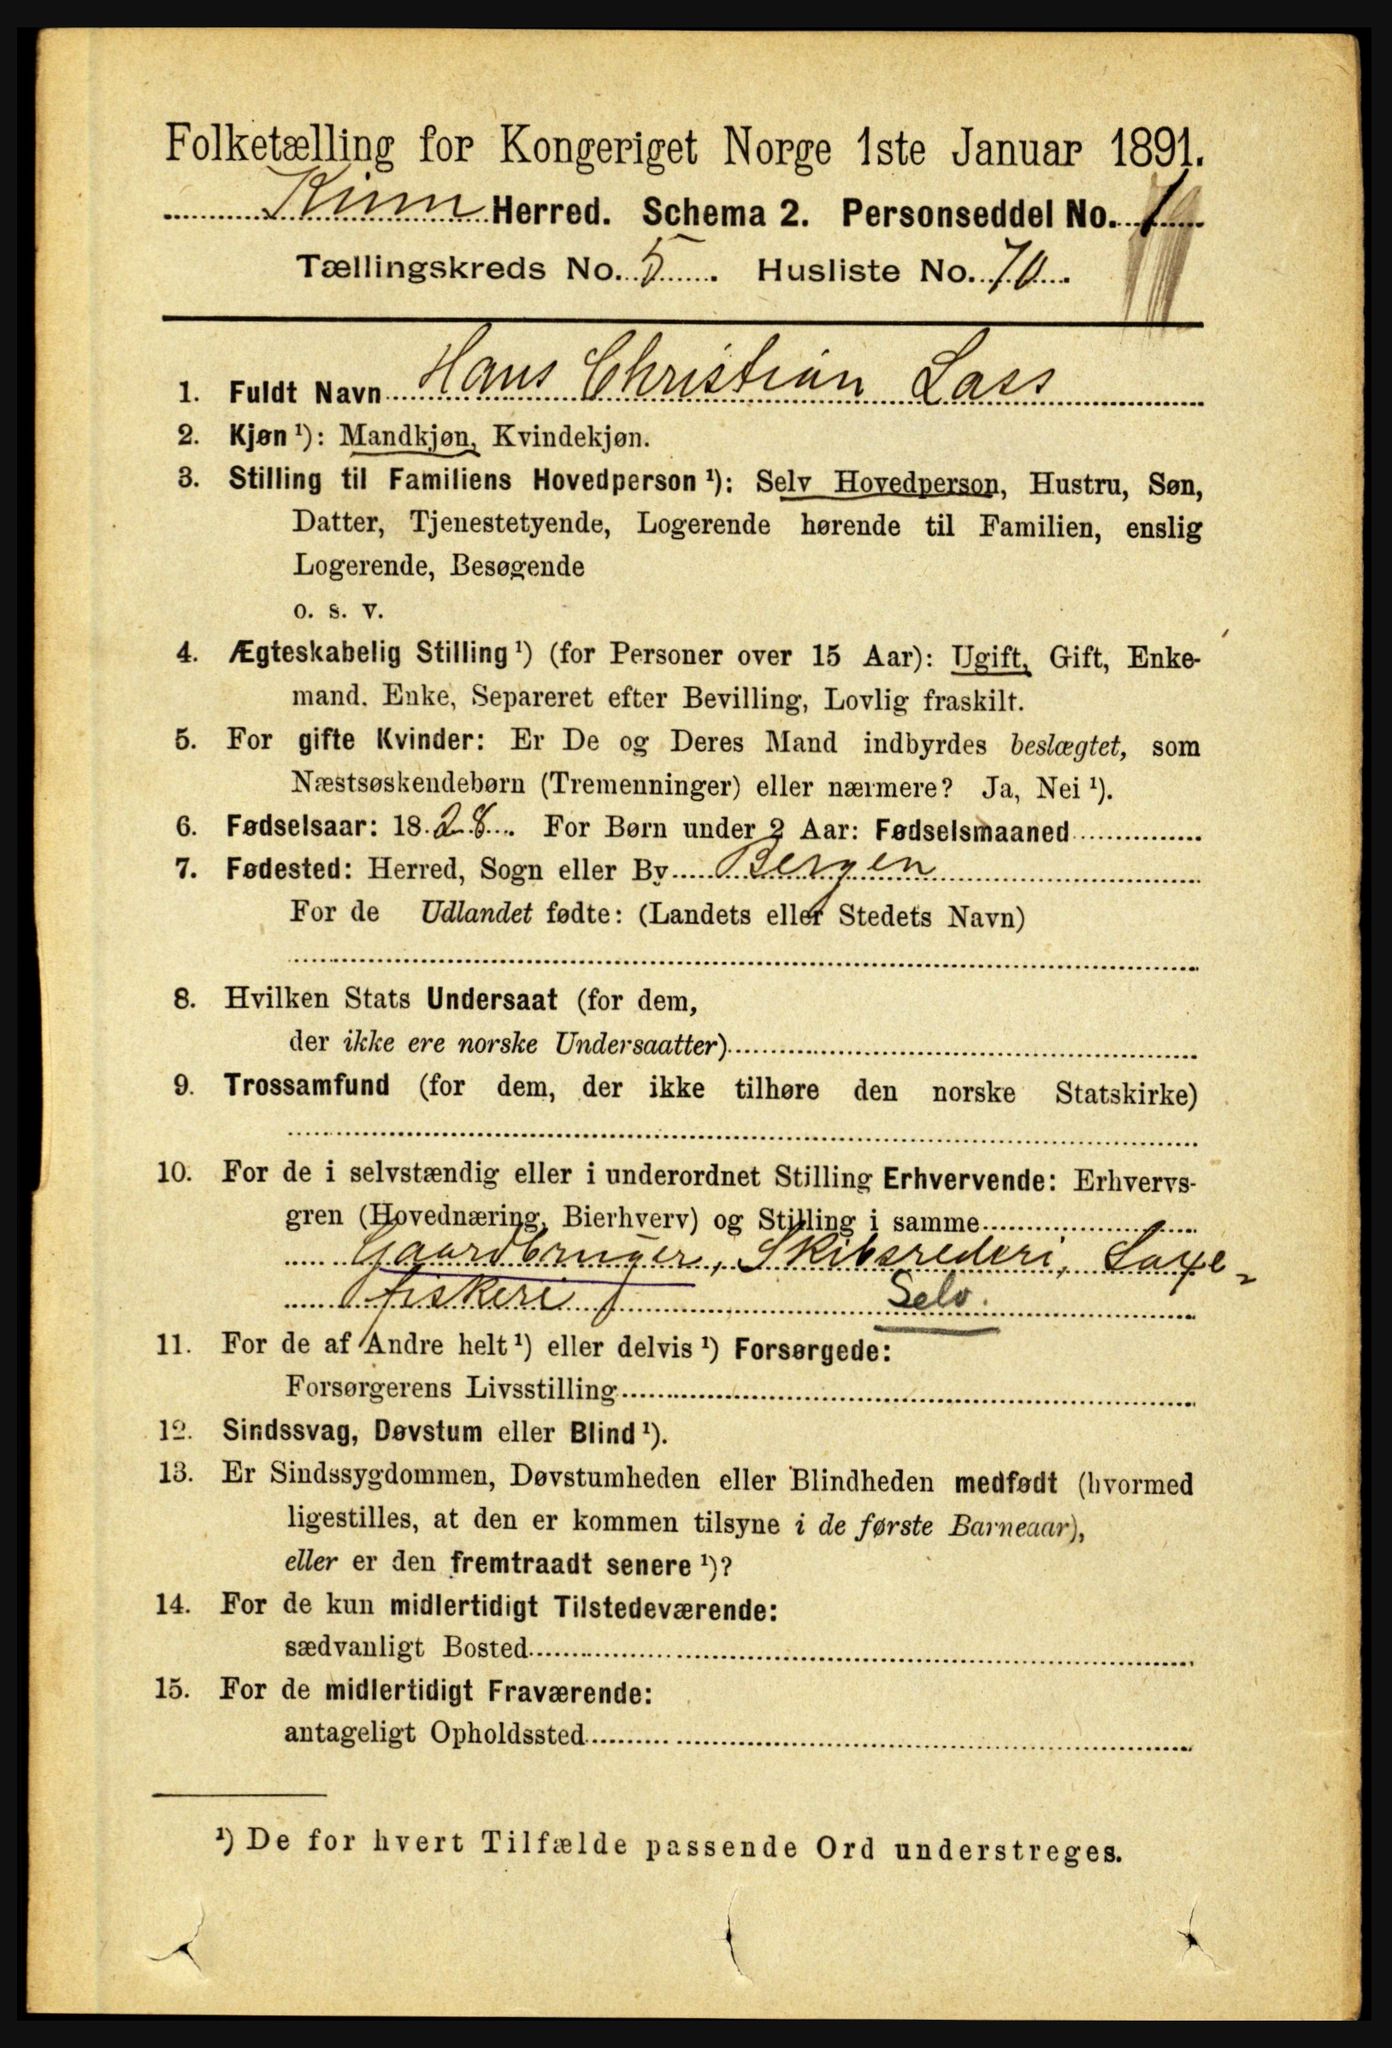 Folketælling for Kongeriget Norge 1ste Januar 1891.
Kinn Herred. Schema 2. Personseddel No. 1
Tællingskreds No. 5. Husliste No. 70.
1. Fuldt Navn Hans Christian Lass
2. Kjøn ¹): Mandkjøn, Kvindekjøn.
3. Stilling til Familiens Hovedperson ¹): Selv Hovedperson, Hustru, Søn,
Datter, Tjenestetyende, Logerende hørende til Familien, enslig
Logerende, Besøgende
o. s. v.
4. Ægteskabelig Stilling ¹) (for Personer over 15 Aar): Ugift, Gift, Enke-
mand, Enke, Separeret efter Bevilling, Lovlig fraskilt.
5. For gifte Kvinder: Er De og Deres Mand indbyrdes beslægtet, som
Næstsøskendebørn (Tremenninger) eller nærmere? Ja, Nei ¹).
6. Fødselsaar: 1828. For Børn under 2 Aar: Fødselsmaaned
7. Fødested: Herred, Sogn eller By Bergen
For de Udlandet fødte: (Landets eller Stedets Navn)
8. Hvilken Stats Undersaat (for dem,
der ikke ere norske Undersaatter)
9. Trossamfund (for dem, der ikke tilhøre den norske Statskirke)
10. For de i selvstændig eller i underordnet Stilling Erhvervende: Erhvervs-
gren (Hovednæring, Bierhverv) og Stilling i samme
Gaardbruger, Skibsrederi, Laxe-
fiskeri Selv.
11. For de af Andre helt ¹) eller delvis ¹) Forsørgede:
Forsørgerens Livsstilling
12. Sindssvag, Døvstum eller Blind ¹).
13. Er Sindssygdommen, Døvstumheden eller Blindheden medfødt (hvormed
ligestilles, at den er kommen tilsyne i de første Barneaar),
eller er den fremtraadt senere ¹)?
14. For de kun midlertidigt Tilstedeværende:
sædvanligt Bosted
15. For de midlertidigt Fraværende:
antageligt Opholdssted
¹) De for hvert Tilfælde passende Ord understreges.